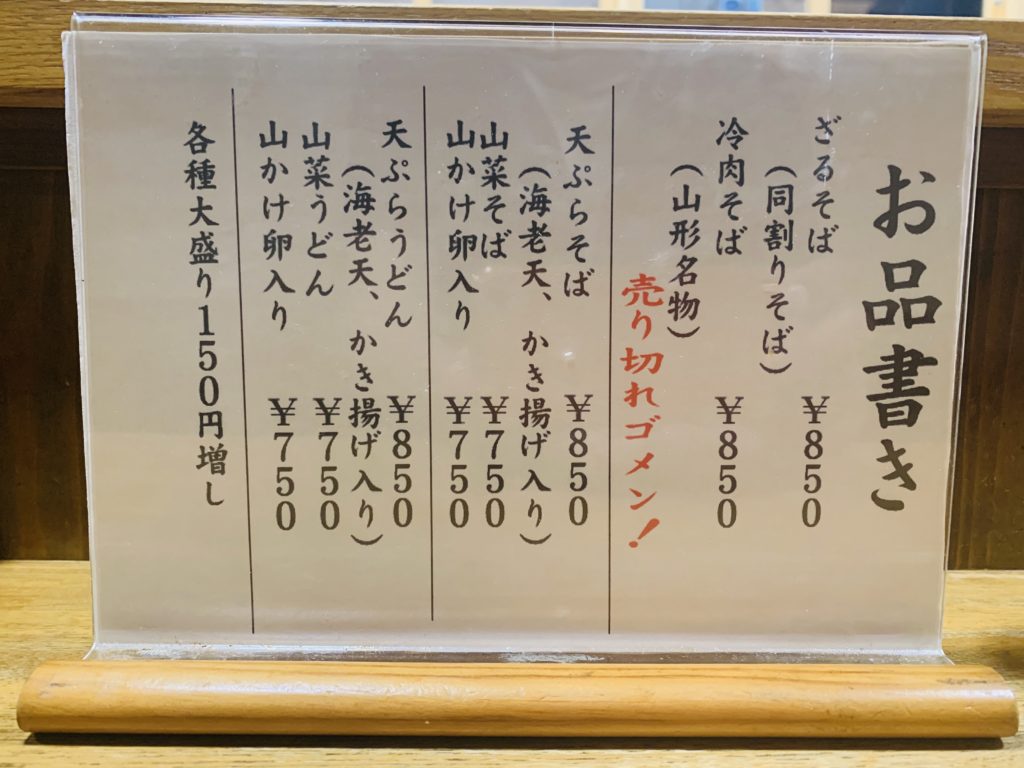 お品書き
ざるそば ¥850
(同割りそば)
冷肉そば ¥850
(山形名物)
売り切れゴメン!
天ぷらそば ¥850
(海老天、かき揚げ入り)
山菜そば ¥750
山かけ卵入り ¥750
天ぷらうどん ¥850
(海老天、かき揚げ入り)
山菜うどん ¥750
山かけ卵入り ¥750
各種大盛り150円増し